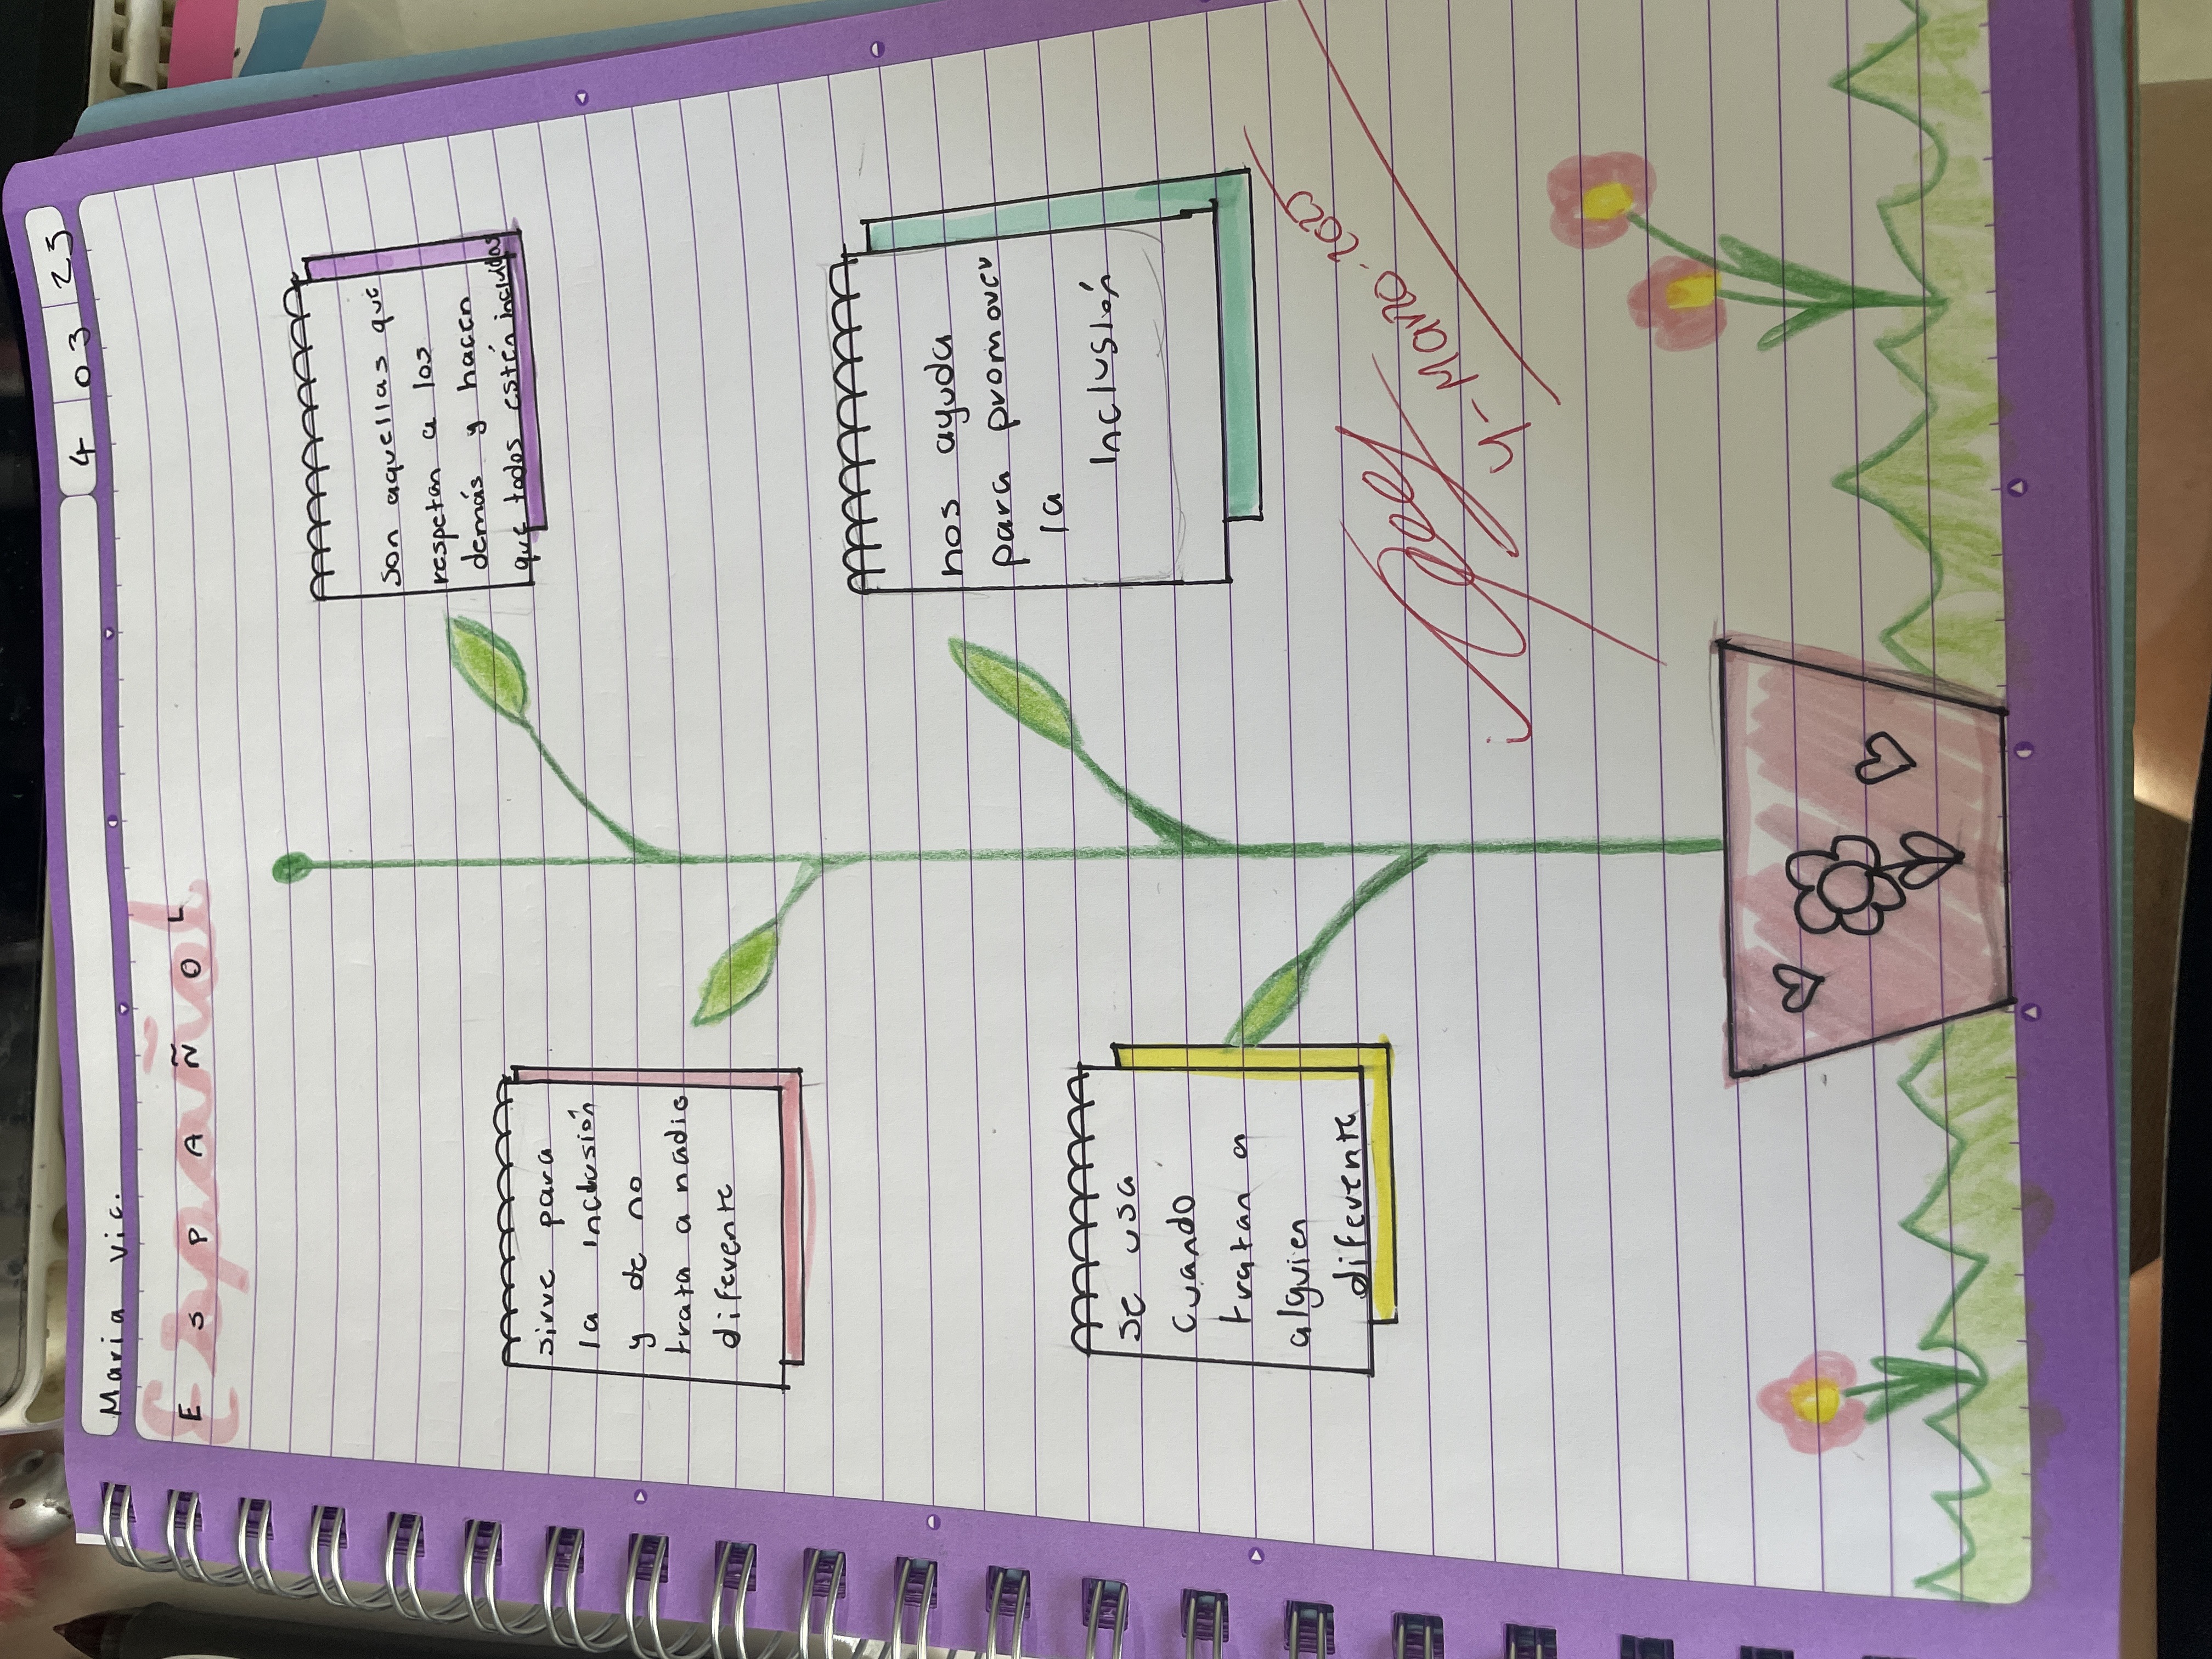 Maria Vic.
4 03 25
Español
E S P A Ñ O L
son aquellas que
respetan a los
demás y hacen
que todos estén incluidos
sirve para
la inclusión
y de no
trata a nadie
diferente
nos ayuda
para promover
la
inclusión
se usa
cuando
tratan a
alguien
diferente
4-Marzo-